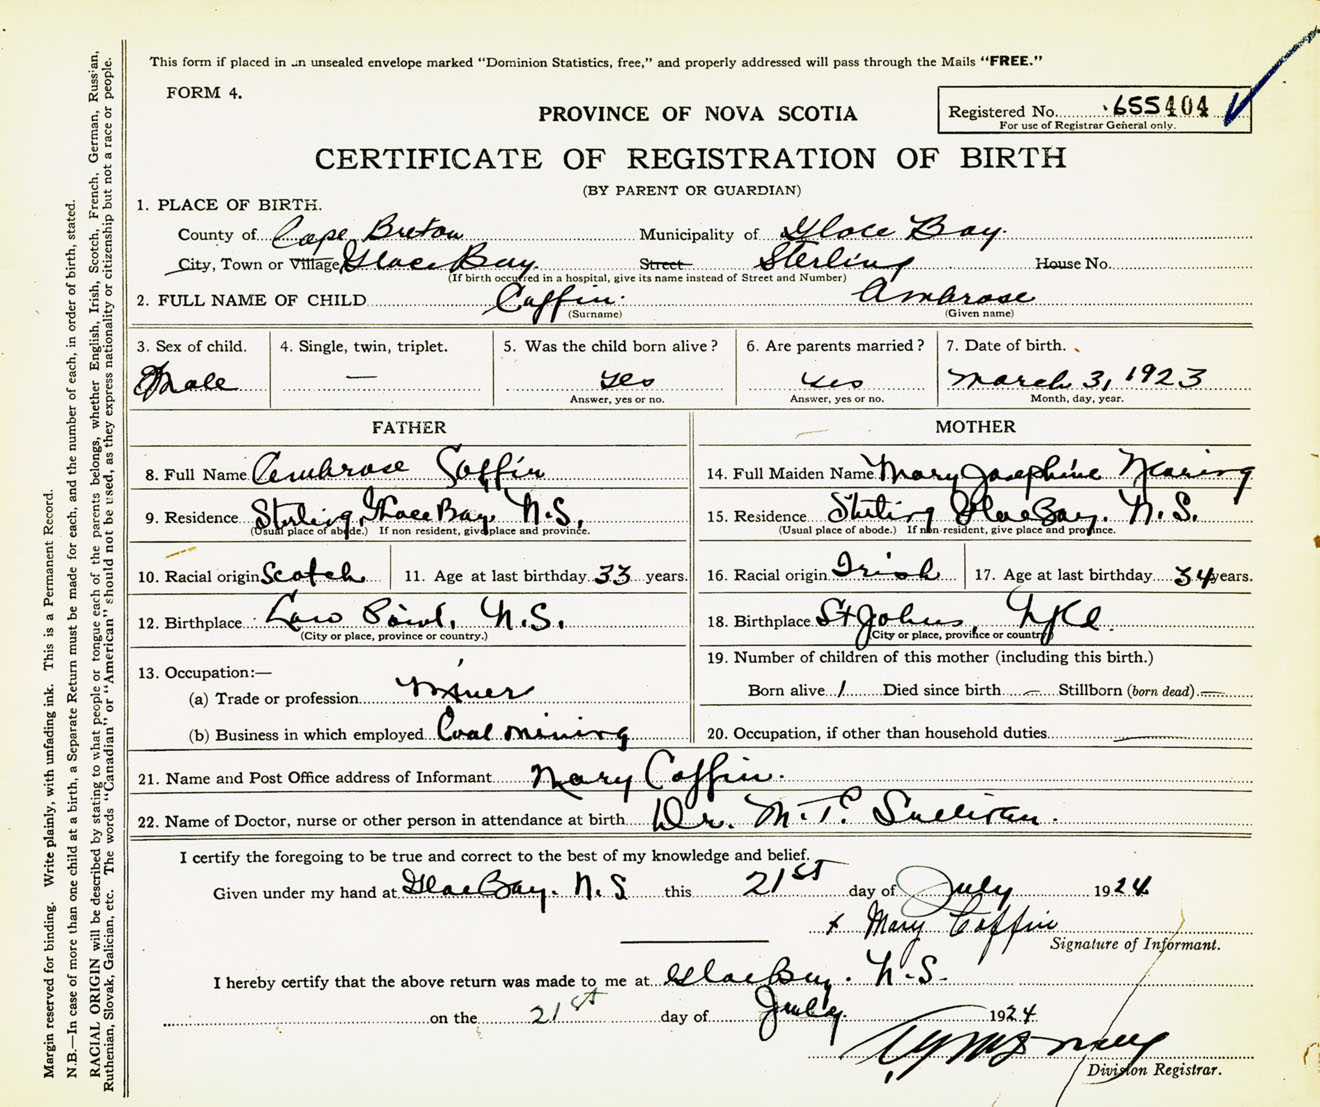 This form if placed in an unsealed envelope marked “Dominion Statistics, free,” and properly addressed will pass through the Mails “FREE.”
FORM 4.
PROVINCE OF NOVA SCOTIA
Registered No. 655404
For use of Registrar General only.
CERTIFICATE OF REGISTRATION OF BIRTH
(BY PARENT OR GUARDIAN)
1. PLACE OF BIRTH.
County of Cape Breton Municipality of Glace Bay.
City, Town or Village Glace Bay Street Sterling House No.
(If birth occurred in a hospital, give its name instead of Street and Number)
2. FULL NAME OF CHILD Coffin Ambrose
(Surname) (Given name)
3. Sex of child. 4. Single, twin, triplet. 5. Was the child born alive? 6. Are parents married? 7. Date of birth.
Male — yes yes March 3, 1923
Answer, yes or no. Answer, yes or no. Month, day, year.
FATHER
8. Full Name Ambrose Coffin
9. Residence Sterling, Glace Bay, N.S.
(Usual place of abode.) If non resident, give place and province.
10. Racial origin Scotch 11. Age at last birthday 33 years.
12. Birthplace Low Point, N.S.
(City or place, province or country.)
13. Occupation:—
(a) Trade or profession Miner
(b) Business in which employed Coal mining
MOTHER
14. Full Maiden Name Mary Josephine
15. Residence Sterling Glace Bay. N.S.
(Usual place of abode.) If non-resident, give place and province.
16. Racial origin Irish 17. Age at last birthday 34 years.
18. Birthplace St Johns, Nfld.
(City or place, province or country)
19. Number of children of this mother (including this birth.)
Born alive 1 Died since birth — Stillborn (born dead) —
20. Occupation, if other than household duties —
21. Name and Post Office address of Informant Mary Coffin.
22. Name of Doctor, nurse or other person in attendance at birth Dr. M.T. Sullivan.
I certify the foregoing to be true and correct to the best of my knowledge and belief.
Given under my hand at Glace Bay. N.S this 21st day of July 1924
x Mary Coffin
Signature of Informant.
I hereby certify that the above return was made to me at Glace Bay. N.S.
on the 21st day of July 1924.
Division Registrar.
Margin reserved for binding. Write plainly, with unfading ink. This is a Permanent Record.
N.B.—In case of more than one child at a birth, a Separate Return must be made for each, and the number of each, in order of birth, stated.
RACIAL ORIGIN will be described by stating to what people or tongue each of the parents belongs, whether English, Irish, Scotch, French, German, Russian,
Ruthenian, Slovak, Galician, etc. The words “Canadian” or “American” should not be used, as they express nationality or citizenship but not a race or people.